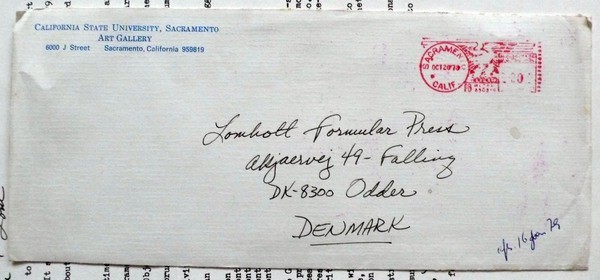 CALIFORNIA STATE UNIVERSITY, SACRAMENTO
ART GALLERY
6000 J Street Sacramento, California 959819
SACRAMENTO
CALIF.
Lomholt Formular Press
Abjaervej 49 - Falling
DK-8300 Odder
DENMARK